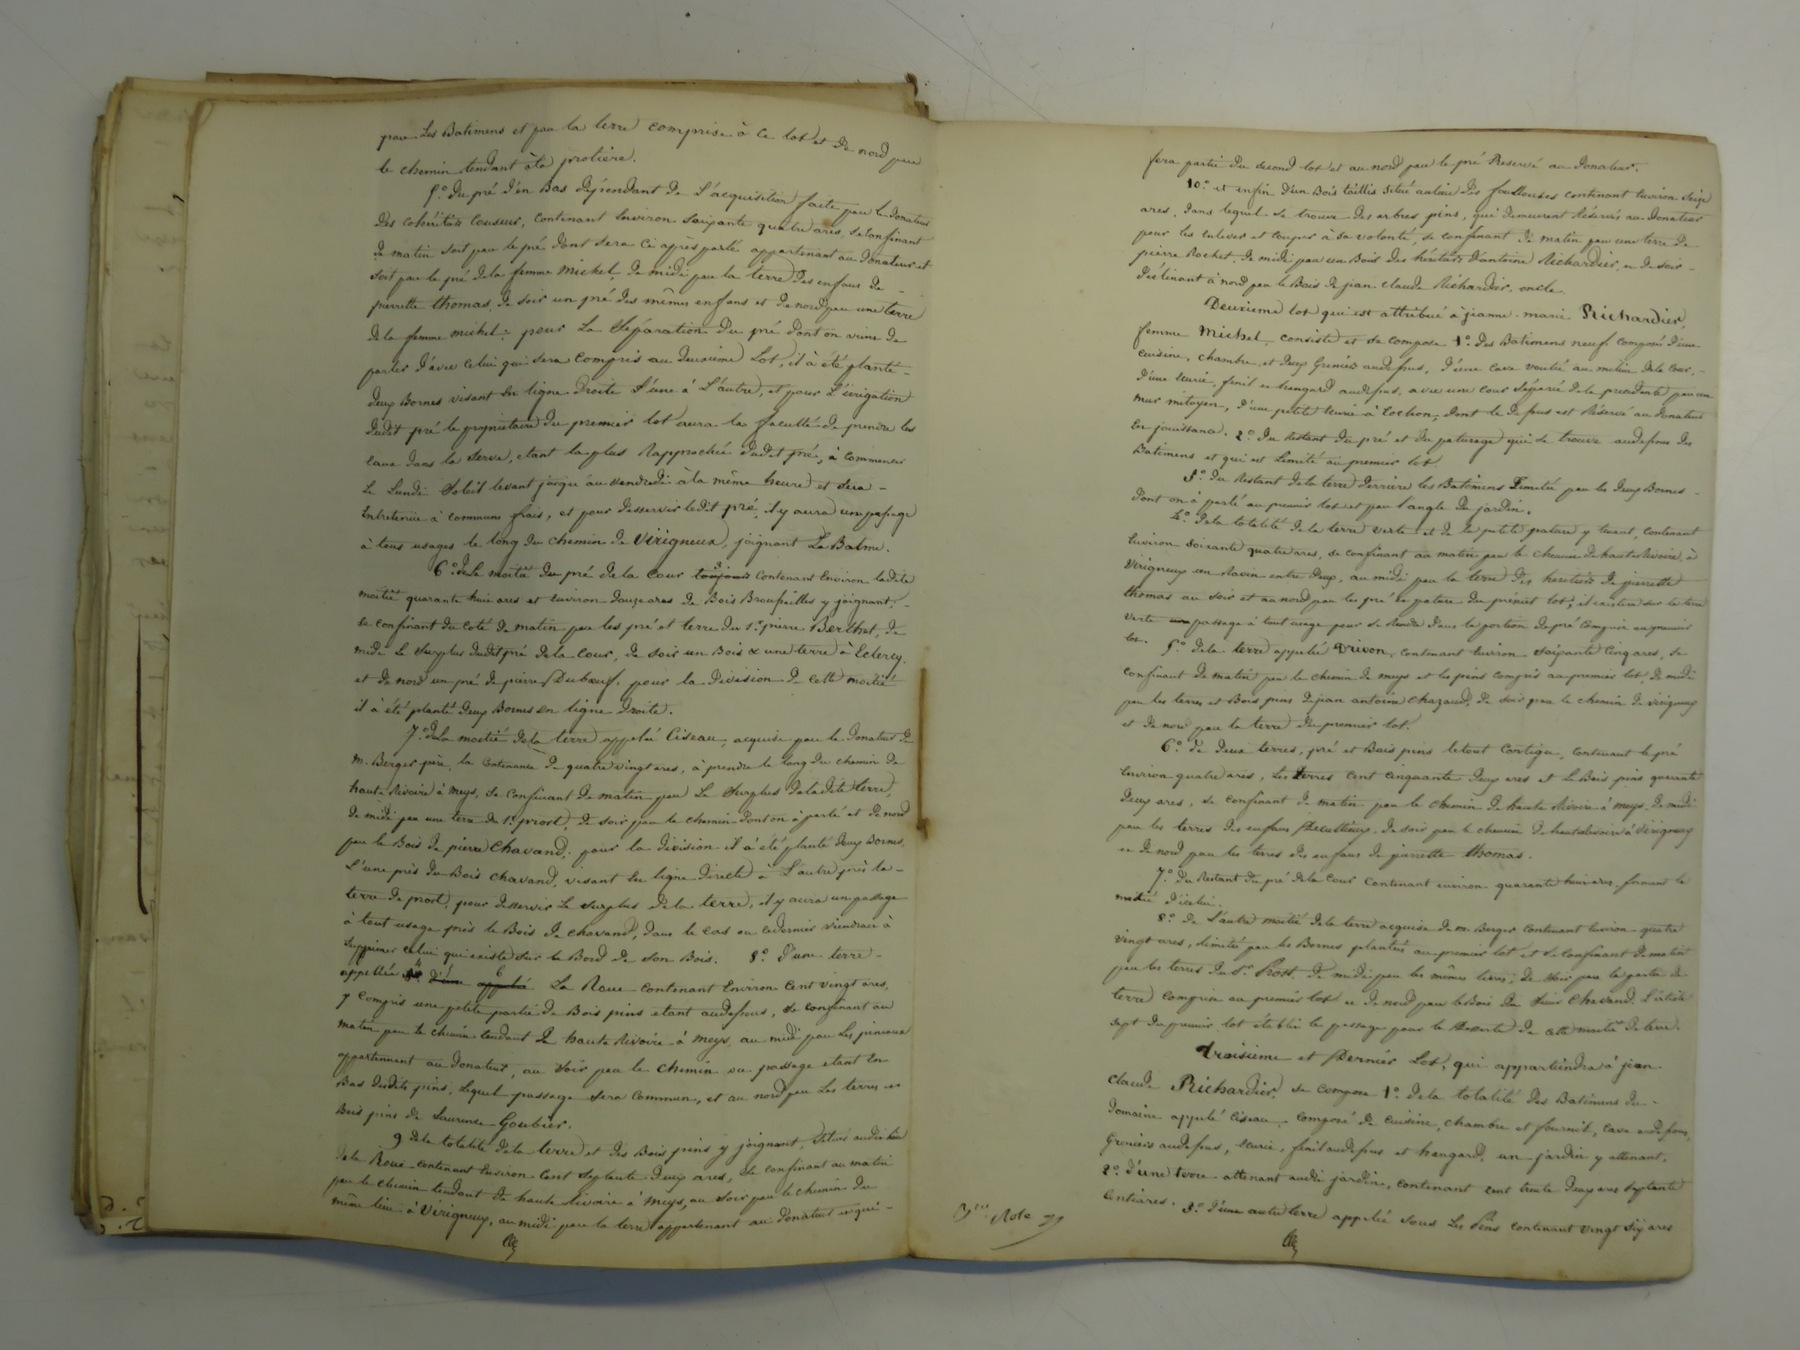 par les Batimens et par la terre comprise à ce lot et de nord par
le chemin tendant à la protiere.
5.° du pré d'en Bas dépendant de l'acquisition faite par le donateur
des cohéritiers Couseur, contenant Environ soixante quatre ares, se confinant
de matin soit par le pré dont sera ci après parlé appartenant au donateur et
soit par le pré de la femme Michel, de midi par la terre des enfans de -
pierrette thomas, de soir un pré des mêmes enfans et de nord par une terre
de la femme michel; pour la séparation du pré dont on vient de
parler d'avec celui qui sera compris au deuxième Lot, il à été planté -
deux Bornes visant en ligne droite d'une à L'autre, et pour L'irrigation
dudit pré le propriétaire du premier lot aura la faculté de prendre les
eaux dans la serve, etant la plus Rapprochée dudit pré, à commencer
Le Lundi Soleil levant jusqu'au vendredi à la même heure et sera -
Entretenue à communs frais, et pour desservir ledit pré, il y aura un passage
à tous usages le long du chemin de Virigneux, joignant La Balme.
6.° de la moitié du pré de la Cour contenant Environ ladite
moitié quarante huit ares et environ douze ares de Bois Broussailles y joignant, -
se confinant du coté de matin par les pré et terre du S.r pierre Berthet, de
midi Le surplus dudit pré de la Cour, de soir un Bois & une terre à Eclercy,
et de nord un pré de pierre Duboeuf, pour la division de cette moitié
il à été planté deux Bornes en ligne droite.
7.° de la moitié de la terre appelée Ciseau, acquise par le Donateur de
M. Berger père, la contenance de quatre vingt ares, à prendre le long du chemin de
haute Rivoire à Meys, se confinant de matin par Le surplus de ladite terre,
de midi par une terre du S.r priost, de soir par le chemin dont on à parlé et de nord
par le Bois de pierre Chavand, pour la division il à été planté deux Bornes,
L'une près du Bois Chavand, visant en ligne directe à L'autre près la -
terre de prost, pour desservir Le surplus de la terre, il y aura un passage
à tout usage près le Bois de Chavand, dans le cas ou ce dernier viendrai à
supprimer celui qui existe sur le Bord de son Bois. 8.° d'une terre -
appellée La Roue contenant Environ Cent vingt ares,
y compris une petite partie de Bois pins etant audessous, se confinant au
matin par le chemin tendant de haute Rivoire à Meys, au midi par Les pineaux
appartenant au donateur, au soir par le chemin ou passage etant en
Bas desdits pins, lequel passage sera commun, et au nord par Les terres et
Bois pins de Laurence Goubier.
9 de la totalité de la terre et des Bois pins y joignant, situés audit lieu
de la Roue contenant Environ Cent septante deux ares, se confinant au matin
par le chemin tendant de haute Rivoire à Meys, au soir par le chemin du
même lieu à Virigneux, au midi par la terre appartenant au donateur et qui -
3.me Role
fera partie du second lot et au nord par le pré Reservé au donateur.
10.° et enfin d'un Bois taillis situé au lieu des fouillouses contenant Environ seize
ares, dans lequel se trouve des arbres pins, qui demeurent Réservés au donateur
pour les enlever et couper à sa volonté, se confinant de matin par une terre de
pierre Rochet, de midi par un Bois des héritiers d'antoine Richardier, et de soir -
déclinant à nord par le Bois de jean Claude Richardier oncle.
Deuxieme lot qui est attribué à jeanne marie Richardier,
femme Michel, consiste et se compose 1.° des Batimens neuf composé d'une
cuisine, chambre, et deux Greniers audessus, d'une cave voutée au milieu de la cour, -
d'une écurie, fenil et hangard audessus, avec une cour séparée de la précédente par un
mur mitoyen, d'une petite écurie à Cochon, dont le dessus est Réservé au Donateur
En jouissance. 2.° du Restant du pré et du paturage qui se trouve audessous des
Batimens et qui est Limité au premier lot.
3.° du Restant de la terre derrière les Batimens Limitée par les deux Bornes -
dont on à parlé au premier lot et par l'angle du jardin.
4.° de la totalité de la terre verte et de la petite pature y tenant, contenant
Environ soixante quatre ares, se confinant au matin par le chemin de haute Rivoire à
Virigneux un Ravin entre deux, au midi par la terre des héritiers de pierrette
thomas au soir et au nord par les pré et pature du premier lot; il existera sur la terre
verte passage à tout usage pour se Rendre dans la portion de pré comprise au premier
lot. 5.° de la terre appelée Vrivon, contenant Environ soixante Cinq ares, se
confinant de matin par le chemin de meys et les pins compris au premier lot, de midi
par les terres et Bois pins de jean antoine Chazaud, de soir par le chemin de Virigneux
et de nord par la terre du premier lot.
6.° de deux terres, pré et Bois pins le tout Contigu, contenant le pré
Environ quatre ares, Les terres Cent cinquante deux ares et le Bois pins quarante
deux ares, se confinant de matin par le chemin de haute Rivoire à meys, de midi
par les terres des enfans, de soir par le chemin de haute Rivoire à Virigneux
et de nord par les terres des enfans de pierrette thomas.
7.° du Restant du pré de la Cour contenant environ quarante huit ares formant la
moitié d'icelui.
8.° de L'autre moitié de la terre acquise de M. Berger contenant Environ quatre
vingt ares, limitée par les Bornes plantées au premier lot et se confinant de matin
par les terres du S.r Prost, de midi par les mêmes terres, de soir par la partie de
terre comprise au premier lot et de nord par le Bois du sieur Chavand. L'article
sept du premier lot établit le passage pour la desserte de cette moitié de terre.
Troisieme et Dernier Lot, qui appartiendra à jean
claude Richardier, se compose 1.° de la totalité des Batimens du -
Domaine appelé Ciseau, composé de Cuisine, chambre et fournil, Cave audessous,
Greniers audessus, écurie, fenil audessus et hangard, un jardin y attenant,
2.° d'une terre attenant audit jardin, contenant cent trente deux ares septante
Centiares. 3.° d'une autre terre appelée sous Les Pins contenant vingt six ares